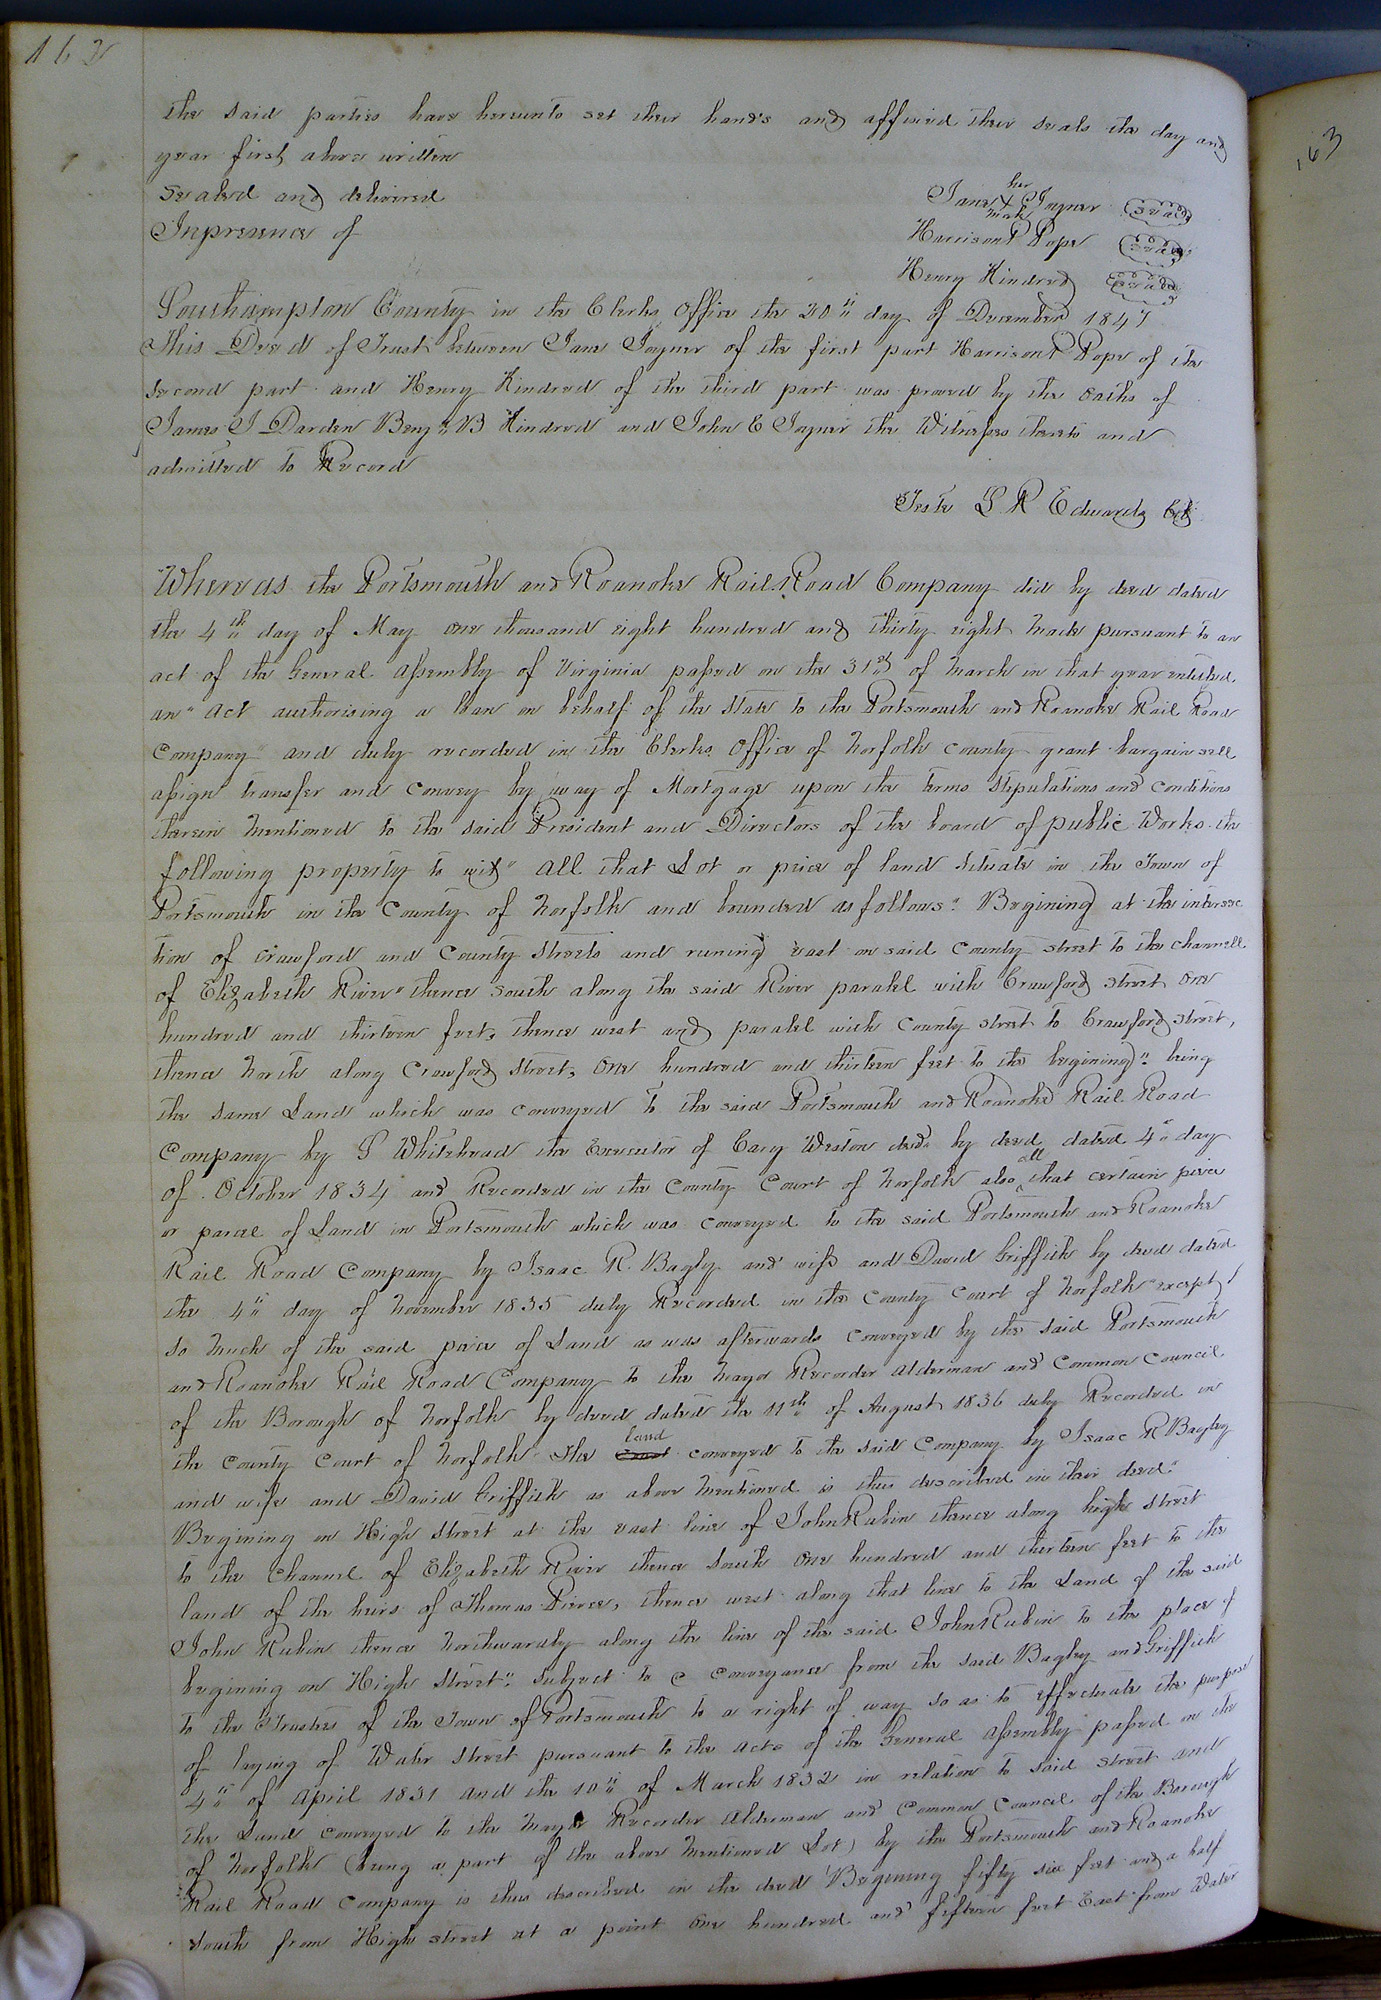 162
163
the said parties have hereunto set their hands and affixed their seals the day and
year first above written
Sealed and delivered
Inpresence of
her
Jane X Joyner Seal
mark
Harrison P Pope Seal
Henry Kindred Seal
Southampton County in the Clerks Office the 20th day of December 1847
This Deed of Trust between Jane Joyner of the first part Harrison P Pope of the
second part and Henry Kindred of the third part was proved by the oaths of
James J Darden Benjn B Kindred and John E Joyner the Witnesses thereto and
admitted to Record
Teste L. R Edwards Clk
Whereas the Portsmouth and Roanoke Rail Road Company did by deed dated
the 4th day of May one thousand eight hundred and thirty eight made pursuant to an
act of the General Assembly of Virginia passed on the 31st of March in that year entitled
an "Act authorising a loan on behalf of the State to the Portsmouth and Roanoke Rail Road
Company" and duly recorded in the Clerks Office of Norfolk County grant bargain sell
assign transfer and convey by way of Mortgage upon the terms Stipulations and conditions
therein mentioned to the said President and Directors of the board of public Works the
following property to wit" All that Lot or peice of land Situate in the Town of
Portsmouth in the County of Norfolk and bounded as follows: Begining at the intersec
tion of Crawford and County Streets and runing east on said County street to the channell
of Elizabeth River" thence South along the said River paralel with Crawford street one
hundred and thirteen feet, thence west and paralel with County street to Crawford street,
thence North along Crawford Street, One hundred and thirteen feet to the begining" being
the same Land which was conveyed to the said Portsmouth and Roanoke Rail Road
Company by S Whitehead the Executor of Cary Weston decd by deed dated 4th day
of October 1834 and Recorded in the County Court of Norfolk also all that certain peice
or parcel of Land in Portsmouth which was conveyed to the said Portsmouth and Roanoke
Rail Road Company by Isaac R. Bagley and wife and David Griffith by deed dated
the 4th day of November 1835 duly Recorded in the County Court of Norfolk except
so much of the said peice of Land as was afterwards conveyed by the said Portsmouth
and Roanoke Rail Road Company to the Mayor Recorder Alderman and Common Council
of the Borough of Norfolk by deed dated the 11th of August 1836 duly Recorded in
the County Court of Norfolk The land conveyed to the said Company by Isaac R Bagley
and wife and David Griffith as above mentioned is thus described in their deed"
Begining on High Street at the east line of John Rubin thence along high street
to the Channel of Elizabeth River thence South One hundred and thirteen feet to the
land of the heirs of Thomas Pierce, thence west along that line to the Land of the said
John Rubin thence Northwardly along the line of the said John Rubin to the place of
begining on High Street" subject to a conveyance from the said Bagley and Griffith
to the Trustees of the Town of Portsmouth to a right of way so as to effectuate the purpose
of laying of Water Street pursuant to the Acts of the General Assembly passed on the
4th of April 1831 and the 10th of March 1832 in relation to said street and
the Land conveyed to the Mayor Recorder Alderman and Common Council of the Borough
of Norfolk (being a part of the above mentioned Lot) by the Portsmouth and Roanoke
Rail Road Company is thus described in the deed "Begining fifty six feet and a half
South from High street at a point one hundred and fifteen feet East from Water